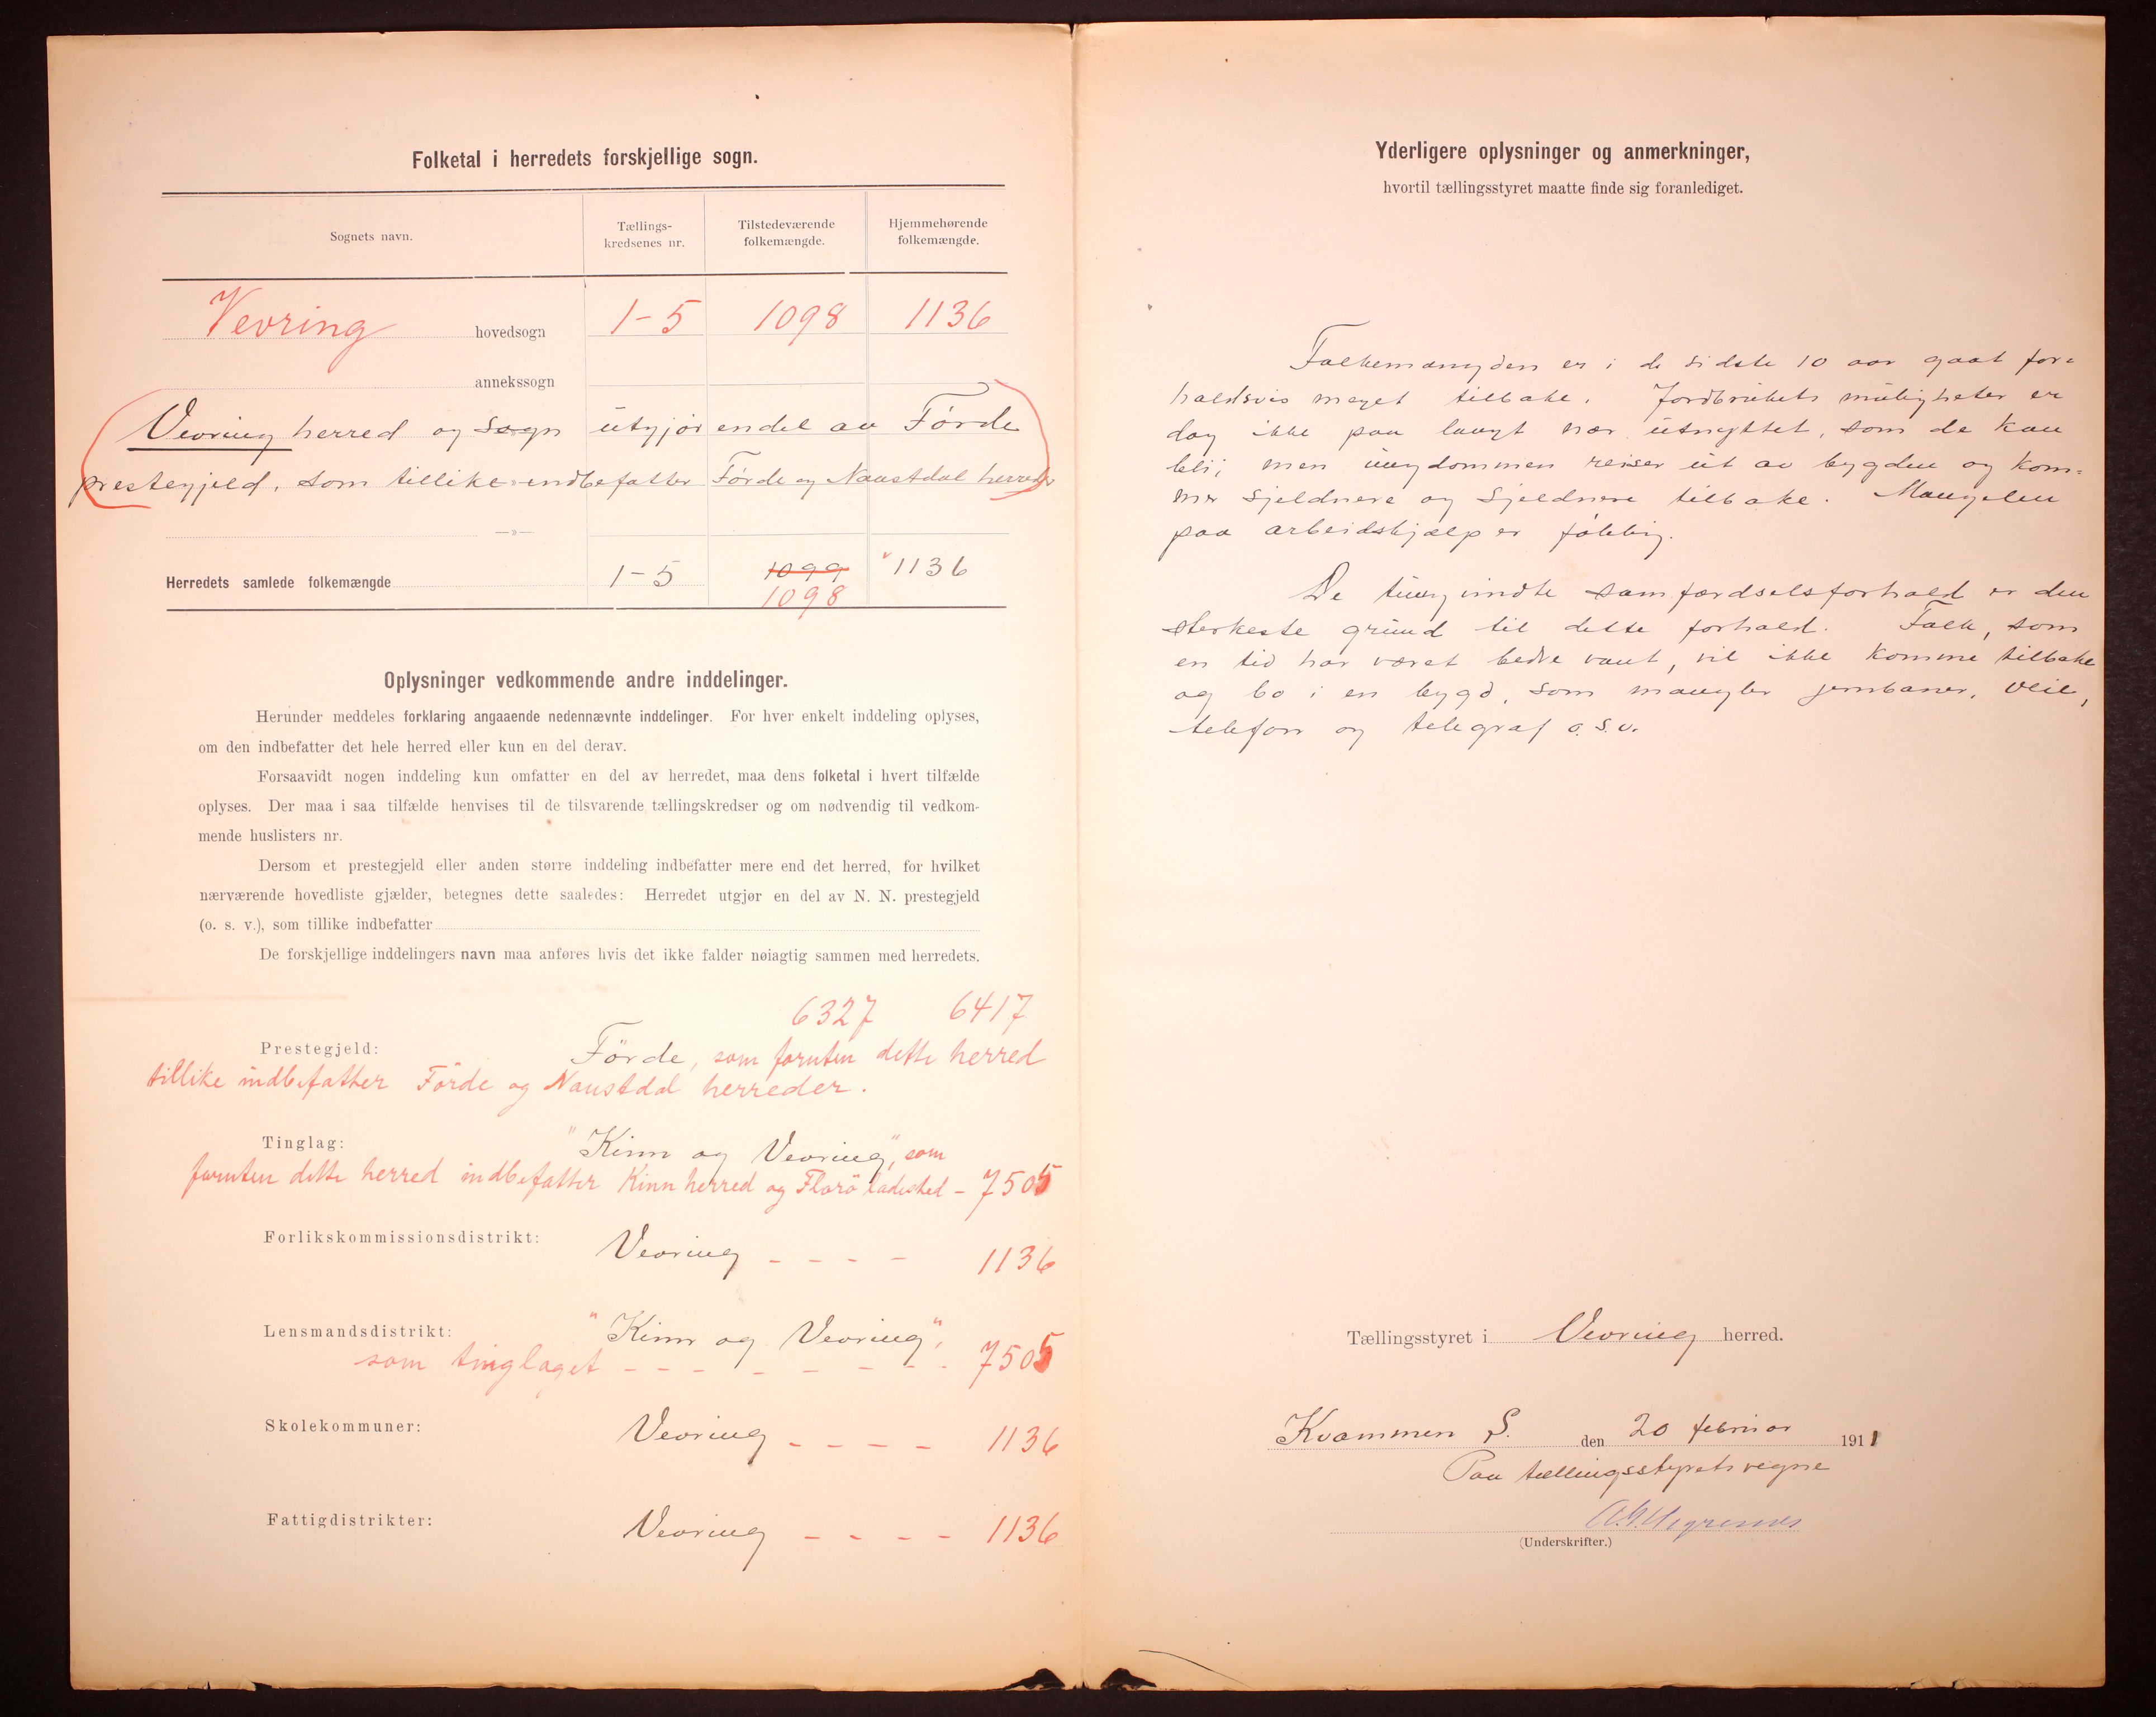 Folketal i herredets forskjellige sogn.
Sognets navn.
Tællings-
kredsenes nr.
Tilstedeværende
folkemængde.
Hjemmehørende
folkemængde.
Vevring hovedsogn 1-5 1098 1136
annekssogn
Vevring herred og sogn utgjør en del av Førde
prestegjeld, som tillike indbefatter Førde og Naustdal herreder
—»—
Herredets samlede folkemængde 1-5 1099 1136
1098
Oplysninger vedkommende andre inddelinger.
Herunder meddeles forklaring angaaende nedennævnte inddelinger. For hver enkelt inddeling oplyses,
om den indbefatter det hele herred eller kun en del derav.
Forsaavidt nogen inddeling kun omfatter en del av herredet, maa dens folketal i hvert tilfælde
oplyses. Der maa i saa tilfælde henvises til de tilsvarende tællingskredser og om nødvendig til vedkom-
mende huslisters nr.
Dersom et prestegjeld eller anden større inddeling indbefatter mere end det herred, for hvilket
nærværende hovedliste gjælder, betegnes dette saaledes: Herredet utgjør en del av N. N. prestegjeld
(o. s. v.), som tillike indbefatter
De forskjellige inddelingers navn maa anføres hvis det ikke falder nøiagtig sammen med herredets.
6327 6417
Prestegjeld: Förde, som foruten dette herred
tillike indbefatter Förde og Naustdal herreder.
Tinglag: "Kinn og Vevring", som
foruten dette herred indbefatter Kinn herred og Florö ladested - 7505
Forlikskommissionsdistrikt: Vevring - - - - 1136
Lensmandsdistrikt: "Kinn og Vevring",
som tinglaget - - - - - - - - 7505
Skolekommuner: Vevring - - - - 1136
Fattigdistrikter: Vevring - - - - 1136
Yderligere oplysninger og anmerkninger,
hvortil tællingsstyret maatte finde sig foranlediget.
Folkemængden er i de sidste 10 aar gaat for-
holdsvis meget tilbake. Jordbrukets muligheter er
dog ikke paa langt nær utnyttet, som de kan
bli; men ungdommen reiser ut av bygden og kom-
mer sjeldnere og sjeldnere tilbake. Mangelen
paa arbeidshjælp er følelig.
De tungvindte samfærdselsforhold er den
sterkeste grund til dette forhold. Folk, som
en tid har været bedre vant, vil ikke komme tilbake
og bo i en bygd, som mangler jernbaner, veie,
telefon og telegraf o.s.v.
Tællingsstyret i Vevring herred.
Kvammen S. den 20 februar 1911
Paa tællingsstyrets vegne
(Underskrifter.)